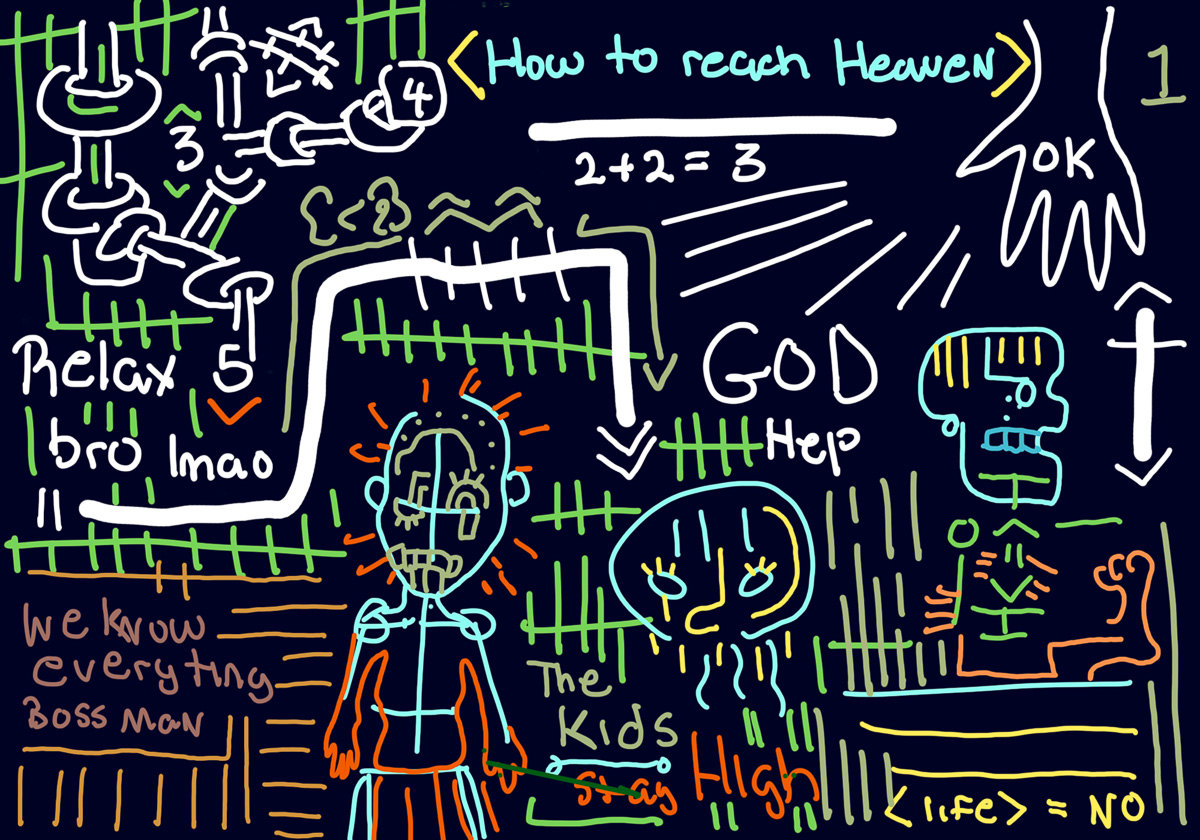 <How to reach Heaven>
1
4
3
2+2 = 3
OK
{<2}
GOD
Relax 5
bro lmao
Hep
We know
everyting
Boss man
The
Kids
stay
High
<life> = NO